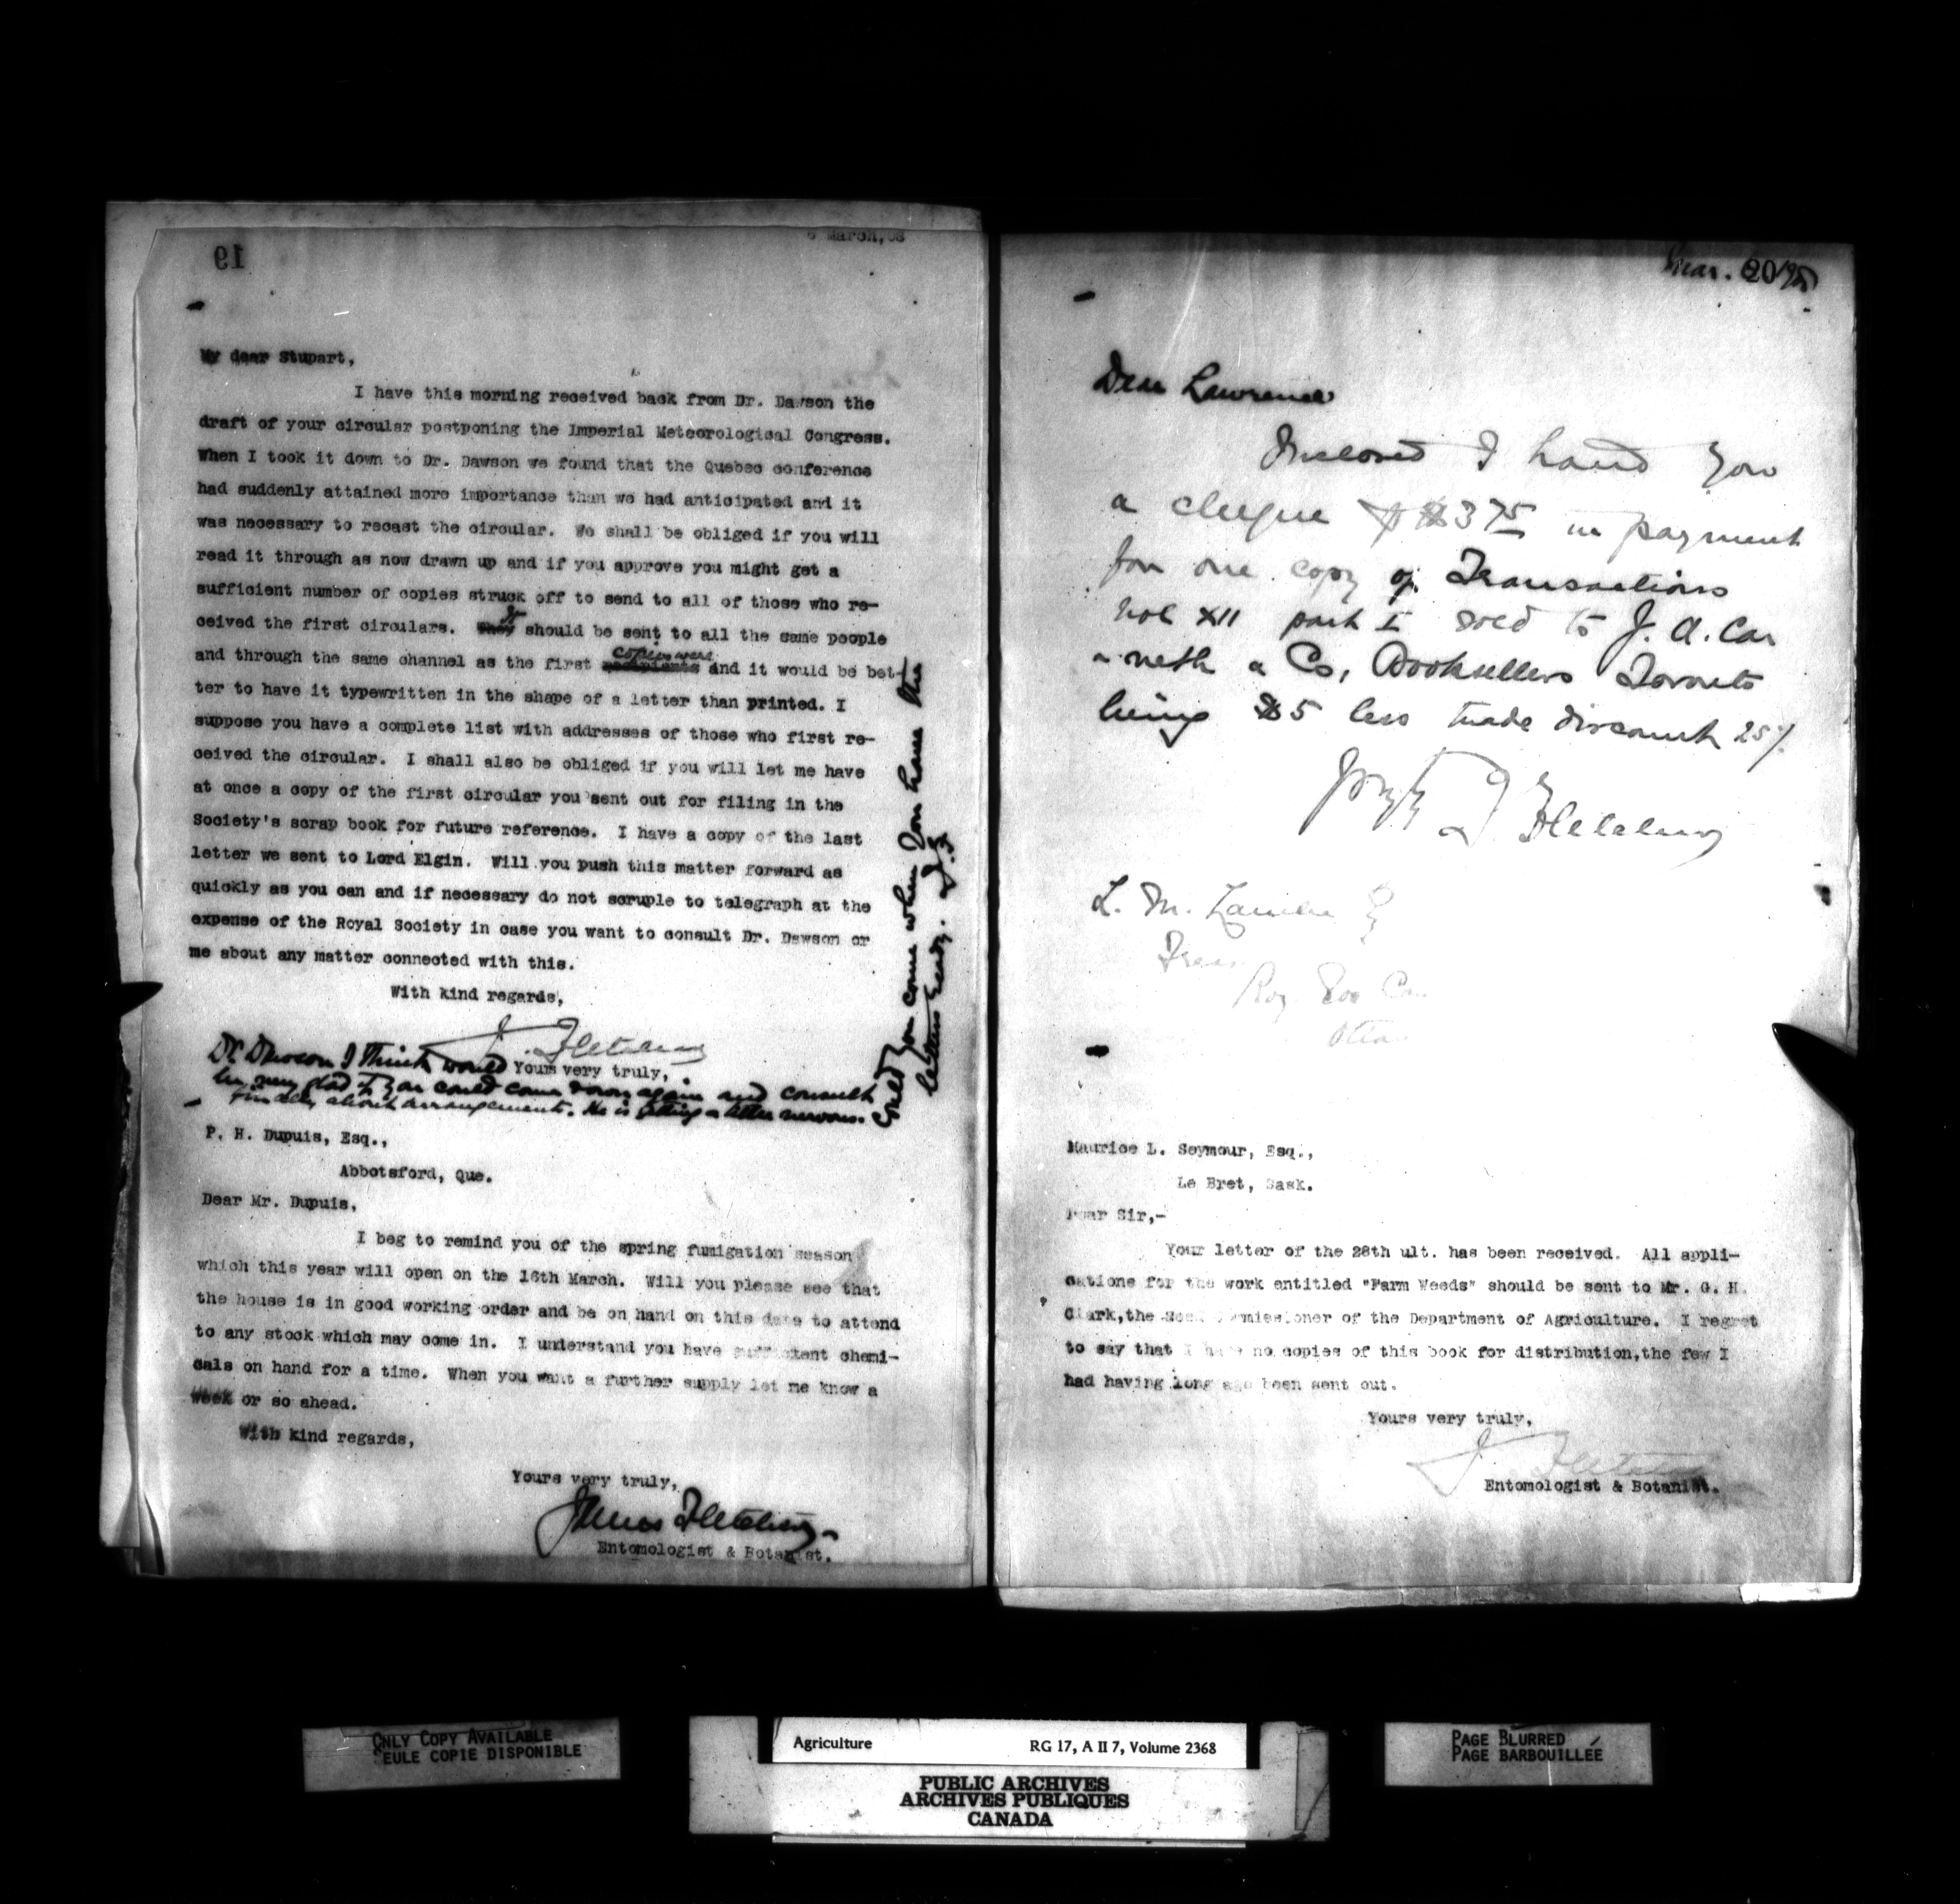 6 March,08
19
My dear Stupart,
I have this morning received back from Dr. Dawson the
draft of your circular postponing the Imperial Meteorological Congress.
When I took it down to Dr. Dawson we found that the Quebec conference
had suddenly attained more importance than we had anticipated and it
was necessary to recast the circular. We shall be obliged if you will
read it through as now drawn up and if you approve you might get a
sufficient number of copies struck off to send to all of those who re-
ceived the first circulars. They It should be sent to all the same people
and through the same channel as the first recipients copies were and it would be bet-
ter to have it typewritten in the shape of a letter than printed. I
suppose you have a complete list with addresses of those who first re-
ceived the circular. I shall also be obliged if you will let me have
at once a copy of the first circular you sent out for filing in the
Society's scrap book for future reference. I have a copy of the last
letter we sent to Lord Elgin. Will you push this matter forward as
quickly as you can and if necessary do not scruple to telegraph at the
expense of the Royal Society in case you want to consult Dr. Dawson or
me about any matter connected with this.
With kind regards,
J. Fletcher
Yours very truly,
Dr. Dawson I think would
be very glad if you could come down again and consult
finally about arrangements. He is getting a little nervous.
Could you come when you have the
letters ready. J.F.
P. H. Dupuis, Esq.,
Abbotsford, Que.
Dear Mr. Dupuis,
I beg to remind you of the spring fumigation season
which this year will open on the 16th March. Will you please see that
the house is in good working order and be on hand on this date to attend
to any stock which may come in. I understand you have sufficient chemi-
cals on hand for a time. When you want a further supply let me know a
week or so ahead.
With kind regards,
Yours very truly,
James Fletcher
Entomologist & Botanist.
Mar.
Dear Lawrence
Inclosed I hand you
a cheque of $3 75 in payment
for one copy of Transactions
Vol XII part I sold to J. A. Car
veth & Co, Booksellers Toronto
being $5 less trade discount 25%
J Fletcher
L. M. Lambe
Treas
Roy Soc Can
Otta
Maurice L. Seymour, Esq.,
Le Bret, Sask.
Dear Sir,-
Your letter of the 28th ult. has been received. All appli-
cations for the work entitled "Farm Weeds" should be sent to Mr. G. H.
Clark,the Seed Commissioner of the Department of Agriculture. I regret
to say that I have no copies of this book for distribution,the few I
had having long ago been sent out.
Yours very truly,
J. Fletcher
Entomologist & Botanist.
ONLY COPY AVAILABLE
SEULE COPIE DISPONIBLE
Agriculture RG 17, A II 7, Volume 2368
PUBLIC ARCHIVES
ARCHIVES PUBLIQUES
CANADA
PAGE BLURRED
PAGE BARBOUILLÉE